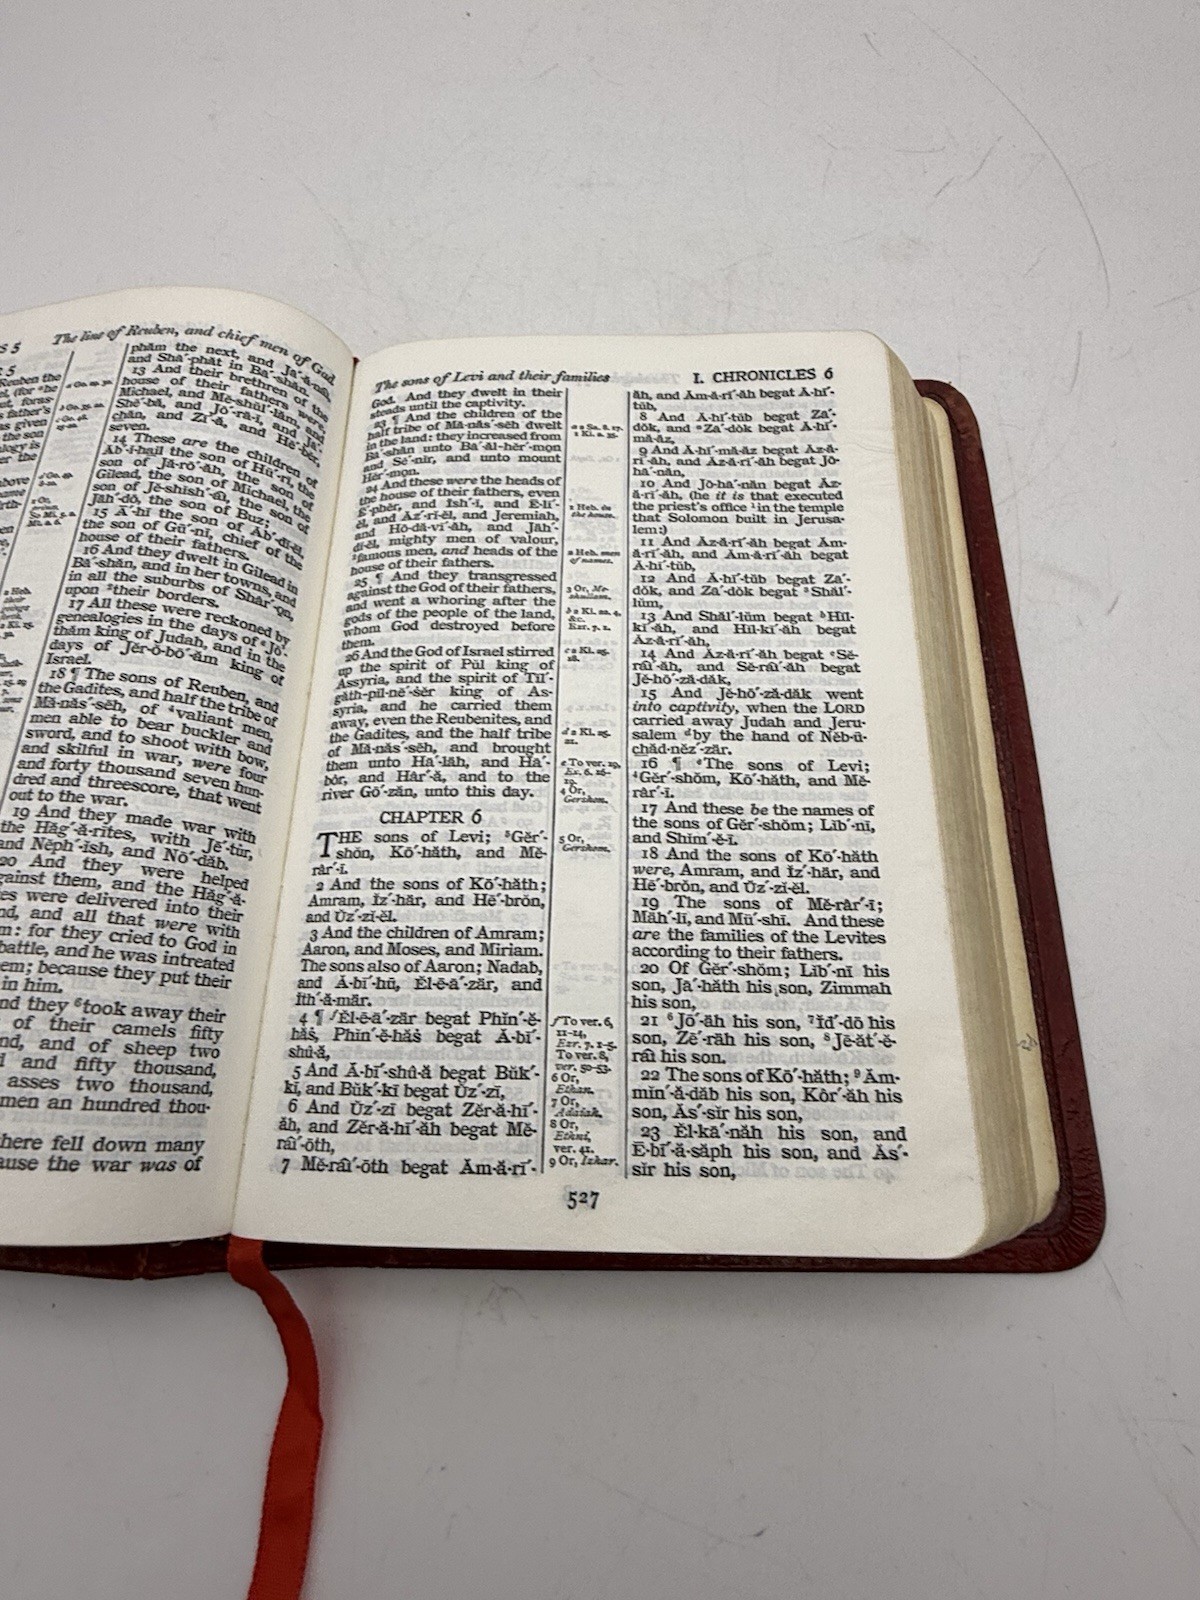 S 5
The line of Reuben, and chief men of Gad
5
Reuben the
(for he
foras-
father's
as given
the son
logy is
er the
above
ame
rth-
phăm the next, and Jā´-ā-nāi,
and Shā´-phăt in Bā´-shăn.
13 And their brethren of the
house of their fathers were,
Michael, and Mē-shŭl´-lăm, and
Shē´-bă, and Jō´-rā-ī, and Jā´-
chăn, and Zī´-ă, and Hē´-bĕr,
seven.
14 These are the children of
Ăb´-ĭ-hail the son of Hū´-rī, the
son of Jă-rō´-ăh, the son of
Gilead, the son of Michael, the
son of Jĕ-shĭsh´-āī, the son of
Jäh´-dō, the son of Buz;
15 Ā´-hī the son of Ăb´-dī-ĕl,
the son of Gū´-nī, chief of the
house of their fathers.
16 And they dwelt in Gilead in
Bā´-shăn, and in her towns, and
in all the suburbs of Shăr´-ŏn,
upon ²their borders.
17 All these were reckoned by
genealogies in the days of Jō´-
thăm king of Judah, and in the
days of Jĕr-ŏ-bō´-ăm king of
Israel.
18 ¶ The sons of Reuben, and
the Gadites, and half the tribe of
Mă-năs´-sĕh, of ⁴valiant men,
men able to bear buckler and
sword, and to shoot with bow,
and skilful in war, were four
and forty thousand seven hun-
dred and threescore, that went
out to the war.
19 And they made war with
the Hăg´-ă-rites, with Jē´-tŭr,
and Nēph´-ĭsh, and Nō´-dăb.
20 And they were helped
gainst them, and the Hăg´-ă-
es were delivered into their
nd, and all that were with
m: for they cried to God in
battle, and he was intreated
em; because they put their
in him.
nd they ⁶took away their
of their camels fifty
nd, and of sheep two
d and fifty thousand,
asses two thousand,
men an hundred thou-
here fell down many
ause the war was of
The sons of Levi and their families
I. CHRONICLES 6
God. And they dwelt in their
steads until the captivity.
23 ¶ And the children of the
half tribe of Mă-năs´-sĕh dwelt
in the land: they increased from
Bā´-shăn unto Bā´-ăl-hĕr´-mon
and Sē´-nir, and unto mount
Hĕr´-mon.
24 And these were the heads of
the house of their fathers, even
Ē´-phĕr, and Ĭsh´-ī, and Ē-lī´-
ĕl, and Ăz´-rĭ-ĕl, and Jeremiah,
and Hŏ-dă-vī´-ăh, and Jäh´-
dĭ-ĕl, mighty men of valour,
²famous men, and heads of the
house of their fathers.
25 ¶ And they transgressed
against the God of their fathers,
and went a whoring after the
gods of the people of the land,
whom God destroyed before
them.
26 And the God of Israel stirred
up the spirit of Pŭl king of
Assyria, and the spirit of Tĭl´-
găth-pil-nē´-ṡĕr king of As-
syria, and he carried them
away, even the Reubenites, and
the Gadites, and the half tribe
of Mă-năs´-sĕh, and brought
them unto Hā´-läh, and Hā´-
bôr, and Hâr´-ă, and to the
river Gō´-zăn, unto this day.
CHAPTER 6
THE sons of Levi; ⁵Gĕr´-
shŏn, Kō´-hăth, and Mĕ-
râr´-ī.
2 And the sons of Kō´-hăth;
Amram, Ĭz´-här, and Hē´-brŏn,
and Ŭz´-zĭ-ĕl.
3 And the children of Amram;
Aaron, and Moses, and Miriam.
The sons also of Aaron; Nadab,
and Ă-bī´-hū, Ĕl-ē-ā´-zär, and
Ĭth´-ă-mär.
4 ¶ ᶠĔl-ē-ā´-zär begat Phĭn´-ĕ-
hăṡ, Phĭn´-ĕ-hăṡ begat Ă-bī´-
shū-ă,
5 And Ă-bī´-shū-ă begat Bŭk´-
kī, and Bŭk´-kī begat Ŭz´-zī,
6 And Ŭz´-zī begat Zĕr-ă-hī´-
ăh, and Zĕr-ă-hī´-ăh begat Mĕ-
râī´-ōth,
7 Mĕ-râī´-ōth begat Ăm-ă-rī´-
a 2 Sa. 8. 17.
1 Ki. 2. 35.
1 Heb. in
the house.
2 Heb. men
of names.
3 Or, Me-
shullam.
b 2 Ki. 22. 4,
&c.
Ezr. 7. 1.
c 2 Ki. 25.
18.
d 2 Ki. 25.
21.
e To ver. 19,
Ex. 6. 16-
19.
4 Or,
Gershon.
5 Or,
Gershom.
f To ver. 6,
11-14,
Ezr. 7. 1-5.
To ver. 8,
ver. 50-53.
6 Or,
Ethan.
7 Or,
Adaiah.
8 Or,
Ethni,
ver. 41.
9 Or, Izhar.
ăh, and Ăm-ă-rī´-ăh begat Ă-hī´-
tŭb,
8 And Ă-hī´-tŭb begat Zā´-
dŏk, and ᵃZā´-dŏk begat Ă-hī´-
mă-ăz,
9 And Ă-hī´-mă-ăz begat Ăz-ă-
rī´-ăh, and Ăz-ă-rī´-ăh begat Jō-
hā´-năn,
10 And Jō-hā´-năn begat Ăz-
ă-rī´-ăh, (he it is that executed
the priest's office ¹in the temple
that Solomon built in Jerusa-
lem:)
11 And Ăz-ă-rī´-ăh begat Ăm-
ă-rī´-ăh, and Ăm-ă-rī´-ăh begat
Ă-hī´-tŭb,
12 And Ă-hī´-tŭb begat Zā´-
dŏk, and Zā´-dŏk begat ³Shăl´-
lŭm,
13 And Shăl´-lŭm begat ᵇHĭl-
kī´-ăh, and Hĭl-kī´-ăh begat
Ăz-ă-rī´-ăh,
14 And Ăz-ă-rī´-ăh begat ᶜSĕ-
râī´-ăh, and Sĕ-râī´-ăh begat
Jĕ-hō´-ză-dăk,
15 And Jĕ-hō´-ză-dăk went
into captivity, when the LORD
carried away Judah and Jeru-
salem ᵈby the hand of Nĕb-ū-
chăd-nĕz´-zär.
16 ¶ ᵉThe sons of Levi;
⁴Gĕr´-shŏm, Kō´-hăth, and Mĕ-
râr´-ī.
17 And these be the names of
the sons of Gĕr´-shŏm; Lĭb´-nī,
and Shĭm´-ĕ-ī.
18 And the sons of Kō´-hăth
were, Amram, and Ĭz´-här, and
Hē´-brŏn, and Ŭz´-zĭ-ĕl.
19 The sons of Mĕ-râr´-ī;
Mäh´-lī, and Mū´-shī. And these
are the families of the Levites
according to their fathers.
20 Of Gĕr´-shŏm; Lĭb´-nī his
son, Jā´-hăth his son, Zimmah
his son,
21 ⁶Jō´-ăh his son, ⁷Ĭd´-dō his
son, Zē´-răh his son, ⁸Jē-ăt´-ĕ-
râī his son.
22 The sons of Kō´-hăth; ⁹Ăm-
mĭn´-ă-dăb his son, Kôr´-ăh his
son, Ăs´-sĭr his son,
23 Ĕl-kā´-năh his son, and
Ē-bī´-ă-săph his son, and Ăs´-
sĭr his son,
527